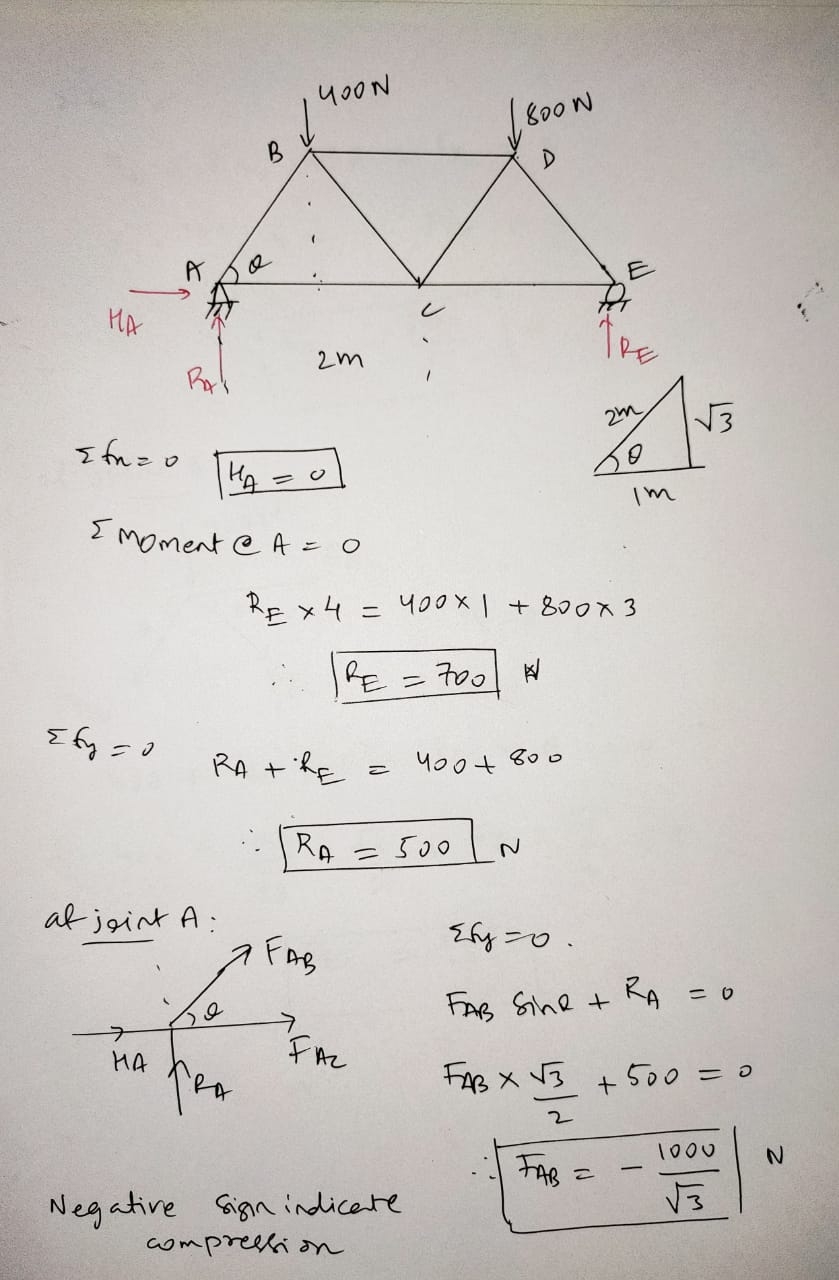 400N
800N
B
D
A
θ
E
HA
C
RA
2m
RE
2m
√3
θ
1m
Σfn=0 HA = 0
Σ Moment @ A = 0
RE x 4 = 400 x 1 + 800 x 3
∴ RE = 700 N
Σfy = 0 RA + RE = 400 + 800
∴ RA = 500 N
at joint A: Σfy=0.
FAB
θ
FAB Sinθ + RA = 0
HA
FAC
RA
FAB x √3/2 + 500 = 0
∴ FAB = - 1000/√3 N
Negative sign indicate
compression